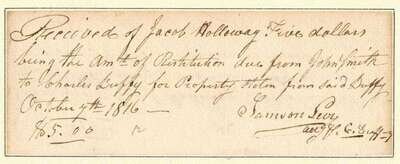 Received of Jacob Holloway Five dollars
being the Amt of Restitution due from John Smith
to Charles Duffy for Property stolen from said Duffy
October 9th 1816 —
Samson Levy
$5.00
atty C. Duffy